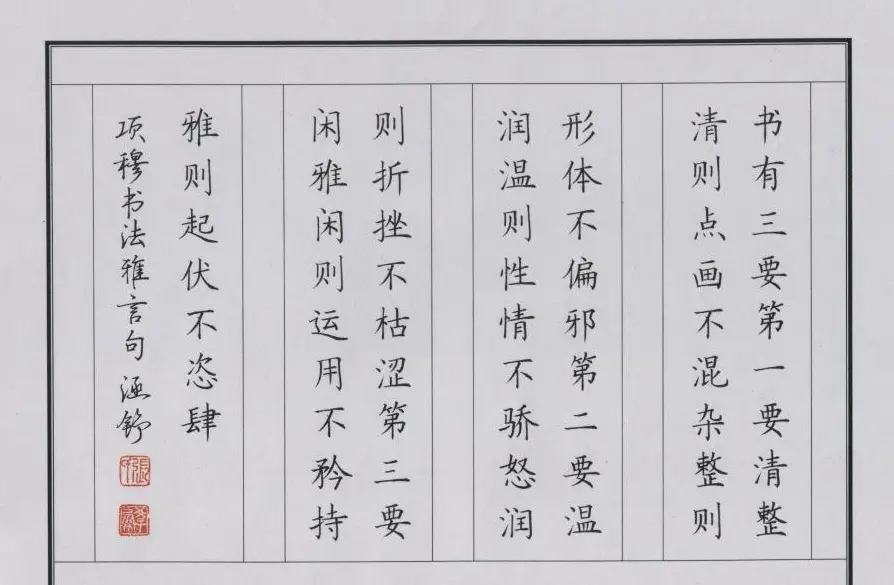 书有三要第一要清整
清则点画不混杂整则
形体不偏邪第二要温
润温则性情不骄怒润
则折挫不枯涩第三要
闲雅闲则运用不矜持
雅则起伏不恣肆
项穆书法雅言句 涵舒